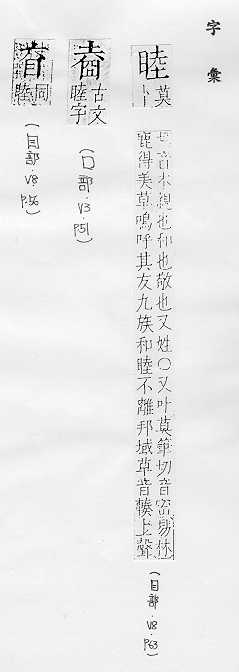 字彙
睦
莫
卜
切音木親也和也敬也又姓○又叶莫筆切音密易林
鹿得美草鳴呼其友九族和睦不離邦域草音輳上聲
(目部.V8.P63)
古文
睦字
(口部.V3.P51)
同
睦
(目部.V8.P56)